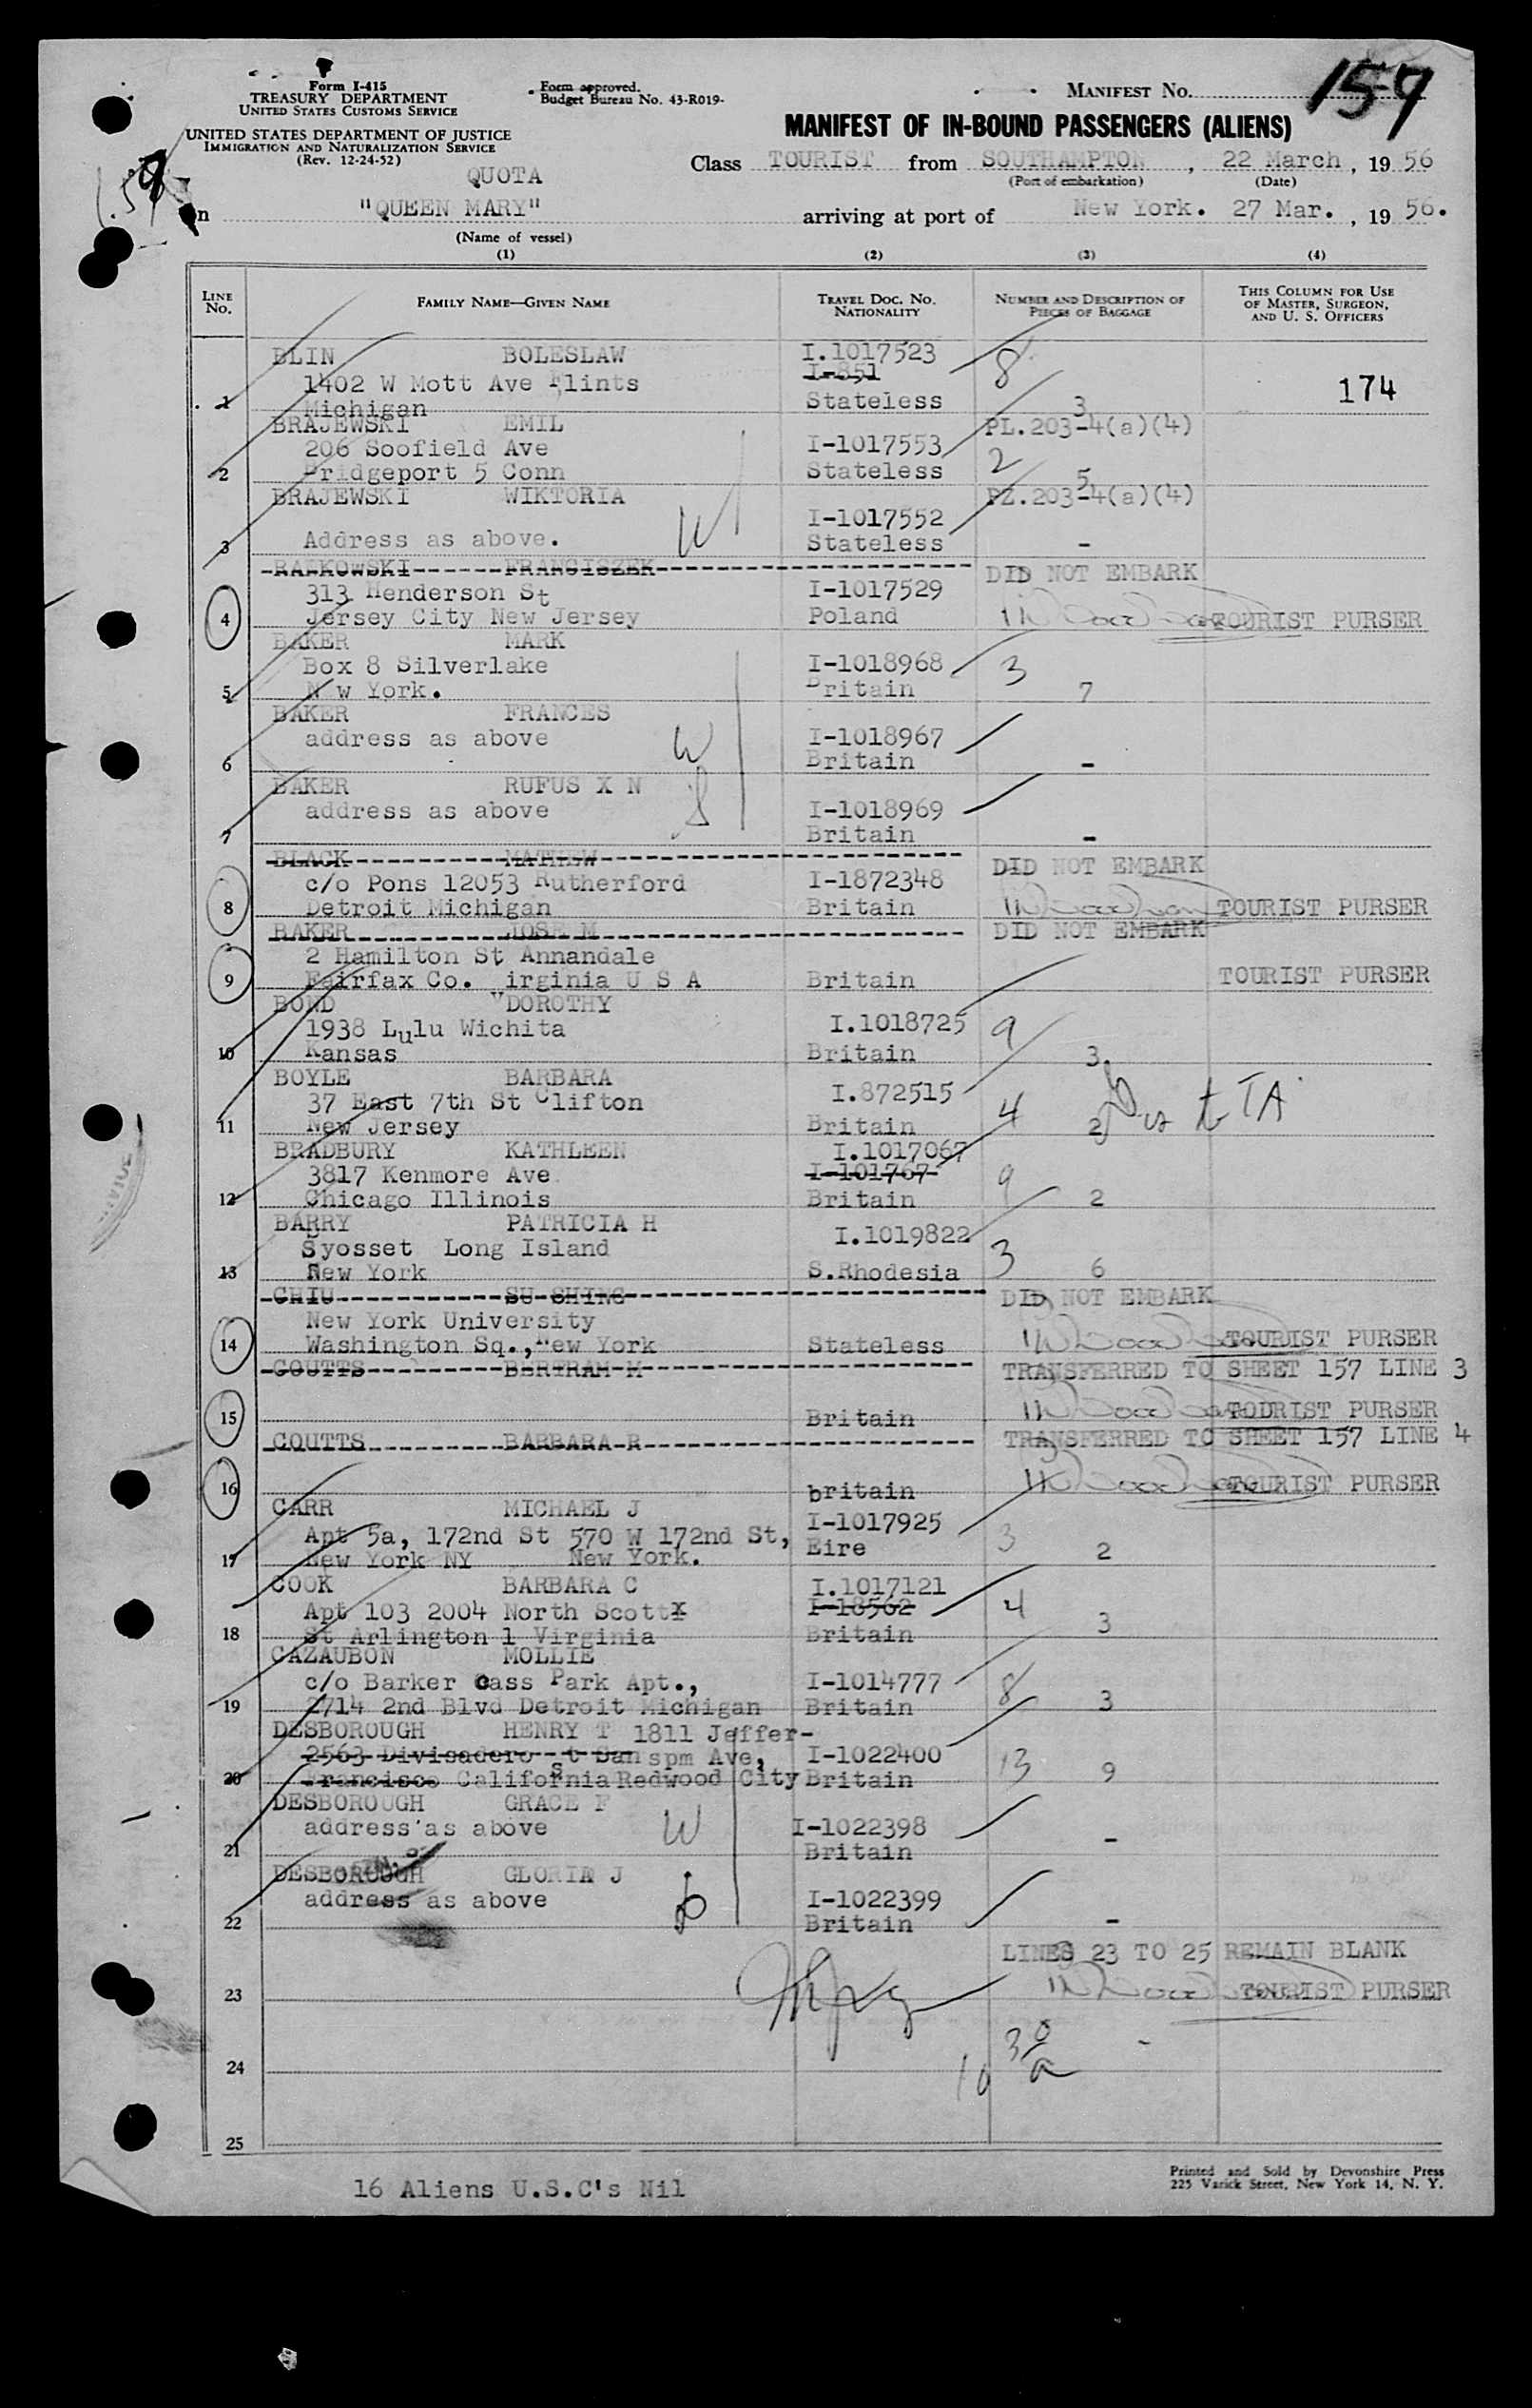 Form I-415
TREASURY DEPARTMENT
UNITED STATES CUSTOMS SERVICE
UNITED STATES DEPARTMENT OF JUSTICE
IMMIGRATION AND NATURALIZATION SERVICE
(Rev. 12-24-52)
Form approved.
Budget Bureau No. 43-R019-
MANIFEST NO. 159
MANIFEST OF IN-BOUND PASSENGERS (ALIENS)
QUOTA
Class TOURIST from SOUTHAMPTON, 22 March, 19 56
(Port of embarkation) (Date)
"QUEEN MARY" arriving at port of New York. 27 Mar., 19 56.
(Name of vessel)
(1) (2) (3) (4)
LINE NO. FAMILY NAME—GIVEN NAME TRAVEL DOC. NO. NATIONALITY NUMBER AND DESCRIPTION OF PIECES OF BAGGAGE THIS COLUMN FOR USE OF MASTER, SURGEON, AND U. S. OFFICERS
BLIN BOLESLAW I.1017523
1402 W Mott Ave Flints I-851 8
1 Michigan Stateless 3 174
BRAJEWSKI EMIL PL.203-4(a)(4)
206 Soofield Ave I-1017553
2 Bridgeport 5 Conn Stateless 2 5
BRAJEWSKI WIKTORIA PZ.203-4(a)(4)
I-1017552
3 Address as above. W Stateless -
RANKOWSKI FRANCISZEK DID NOT EMBARK
313 Henderson St I-1017529
4 Jersey City New Jersey Poland TOURIST PURSER
BAKER MARK
Box 8 Silverlake I-1018968 3
5 N w York. Britain 7
BAKER FRANCES
address as above W I-1018967
6 Britain -
BAKER RUFUS X N
address as above I-1018969
7 Britain -
BLACK MATHEW DID NOT EMBARK
c/o Pons 12053 Rutherford I-1872348
8 Detroit Michigan Britain TOURIST PURSER
BAKER JOSE M DID NOT EMBARK
2 Hamilton St Annandale
9 Fairfax Co. irginia U S A Britain TOURIST PURSER
BOND "DOROTHY
1938 Lulu Wichita I.1018725 9
10 Kansas Britain 3
BOYLE BARBARA
37 East 7th St Clifton I.872515 4
11 New Jersey Britain 2 TA
BRADBURY KATHLEEN I.1017067
3817 Kenmore Ave I-101767 9
12 Chicago Illinois Britain 2
BARRY PATRICIA H
Syosset Long Island I.1019822 3
13 New York S.Rhodesia 6
CHIU SU SHING DID NOT EMBARK
New York University
14 Washington Sq., New York Stateless TOURIST PURSER
COUTTS BERTRAM M TRANSFERRED TO SHEET 157 LINE 3
15 Britain TOURIST PURSER
COUTTS BARBARA R TRANSFERRED TO SHEET 157 LINE 4
16 britain TOURIST PURSER
CARR MICHAEL J I-1017925
Apt 5a, 172nd St 570 W 172nd St, Eire 3
17 New York NY New York. 2
COOK BARBARA C I.1017121
Apt 103 2004 North Scottx I-18562 4
18 St Arlington 1 Virginia Britain 3
CAZAUBON MOLLIE
c/o Barker Cass Park Apt., I-1014777 8
19 2714 2nd Blvd Detroit Michigan Britain 3
DESBOROUGH HENRY T 1811 Jeffer-
2563 Divisadero St San spm Ave, I-1022400 13
20 Francisco California Redwood City Britain 9
DESBOROUGH GRACE F
address as above W I-1022398
21 Britain -
DESBOROUGH GLORIA J
address as above I-1022399
22 Britain -
LINES 23 TO 25 REMAIN BLANK
23 TOURIST PURSER
24
25
16 Aliens U.S.C's Nil
Printed and Sold by Devonshire Press
225 Varick Street, New York 14, N. Y.